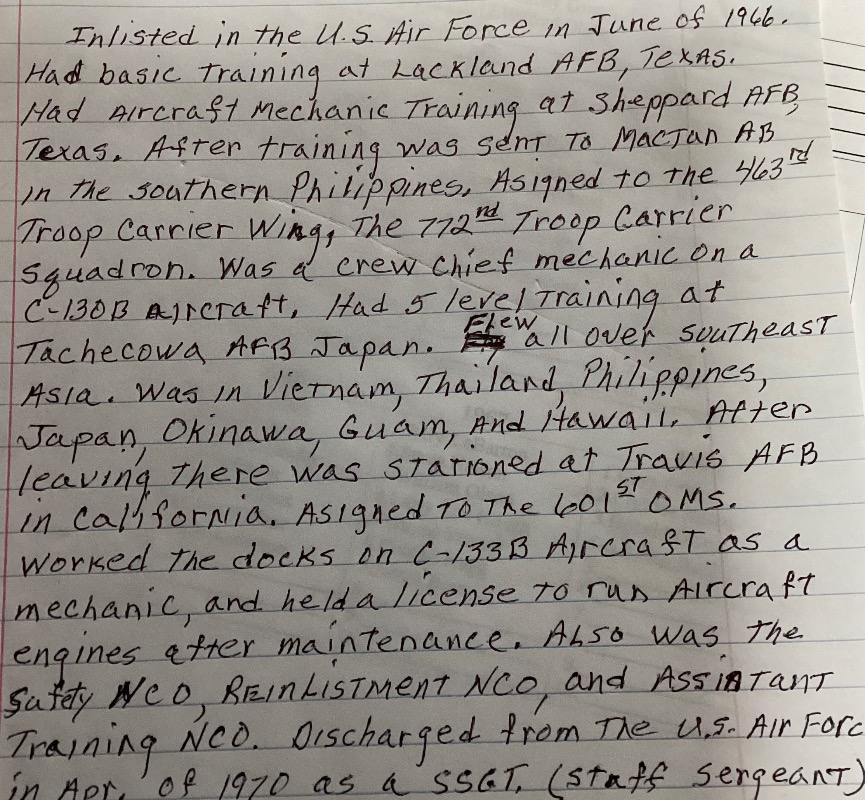 Inlisted in the U.S. Air Force in June of 1966.
Had basic training at Lackland AFB, Texas.
Had Aircraft Mechanic Training at Sheppard AFB,
Texas. After training was sent to Mactan AB
in the southern Philippines. Asigned to the 463rd
Troop Carrier Wing, The 772nd Troop Carrier
Squadron. Was a crew chief mechanic on a
C-130B Aircraft. Had 5 level Training at
Tachecowa AFB Japan. Flew all over southeast
Asia. Was in Vietnam, Thailand, Philippines,
Japan, Okinawa, Guam, And Hawaii. After
leaving there was stationed at Travis AFB
in California. Asigned To The 601ST OMS.
Worked the docks on C-133B Aircraft as a
mechanic, and held a license to run Aircraft
engines after maintenance. Also was the
Safety NCO, Reinlistment NCO, and Assistant
Training NCO. Discharged from The U.S. Air Forc
in Apr. of 1970 as a SSGT. (Staff Sergeant)